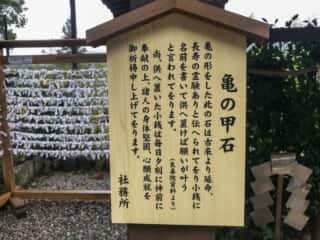 亀の甲石
亀の形をした此の石は古来より延命、
長寿の霊験ありと伝へられてをり小銭に
名前を書いて供へ置けば願いが叶う
と言われてをります。
尚、供へ置いた小銭は毎日夕刻に神前に
奉献の上、諸人の身体堅固、心願成就を
御祈祷申し上げてをります。
社務所